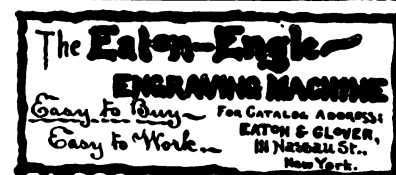 The Eaton-Engle
ENGRAVING MACHINE
Easy to Buy
Easy to Work.
FOR CATALOG ADDRESS:
EATON & GLOVER,
111 Nassau St.,
New York.